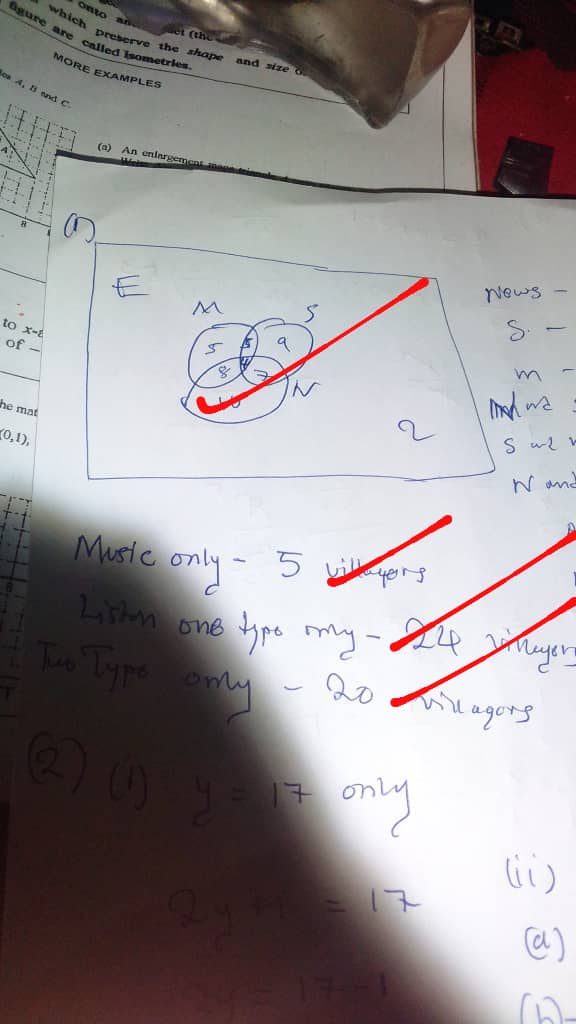 onto an
which preserve the shape and size o
figure are called Isometries.
MORE EXAMPLES
A, B and C.
(a) An enlargement
to x-a
of -
he mat
(0,1),
(1)
E
M
S
5
9
4
8
7
N
10
2
News -
S. -
m -
N and
Music only - 5 villagers
Listen one type only - 24 villagers
Two Type only - 20 villagers
(2) (i) y = 17 only
= 17
= 17-1
(ii)
(a)
(b)